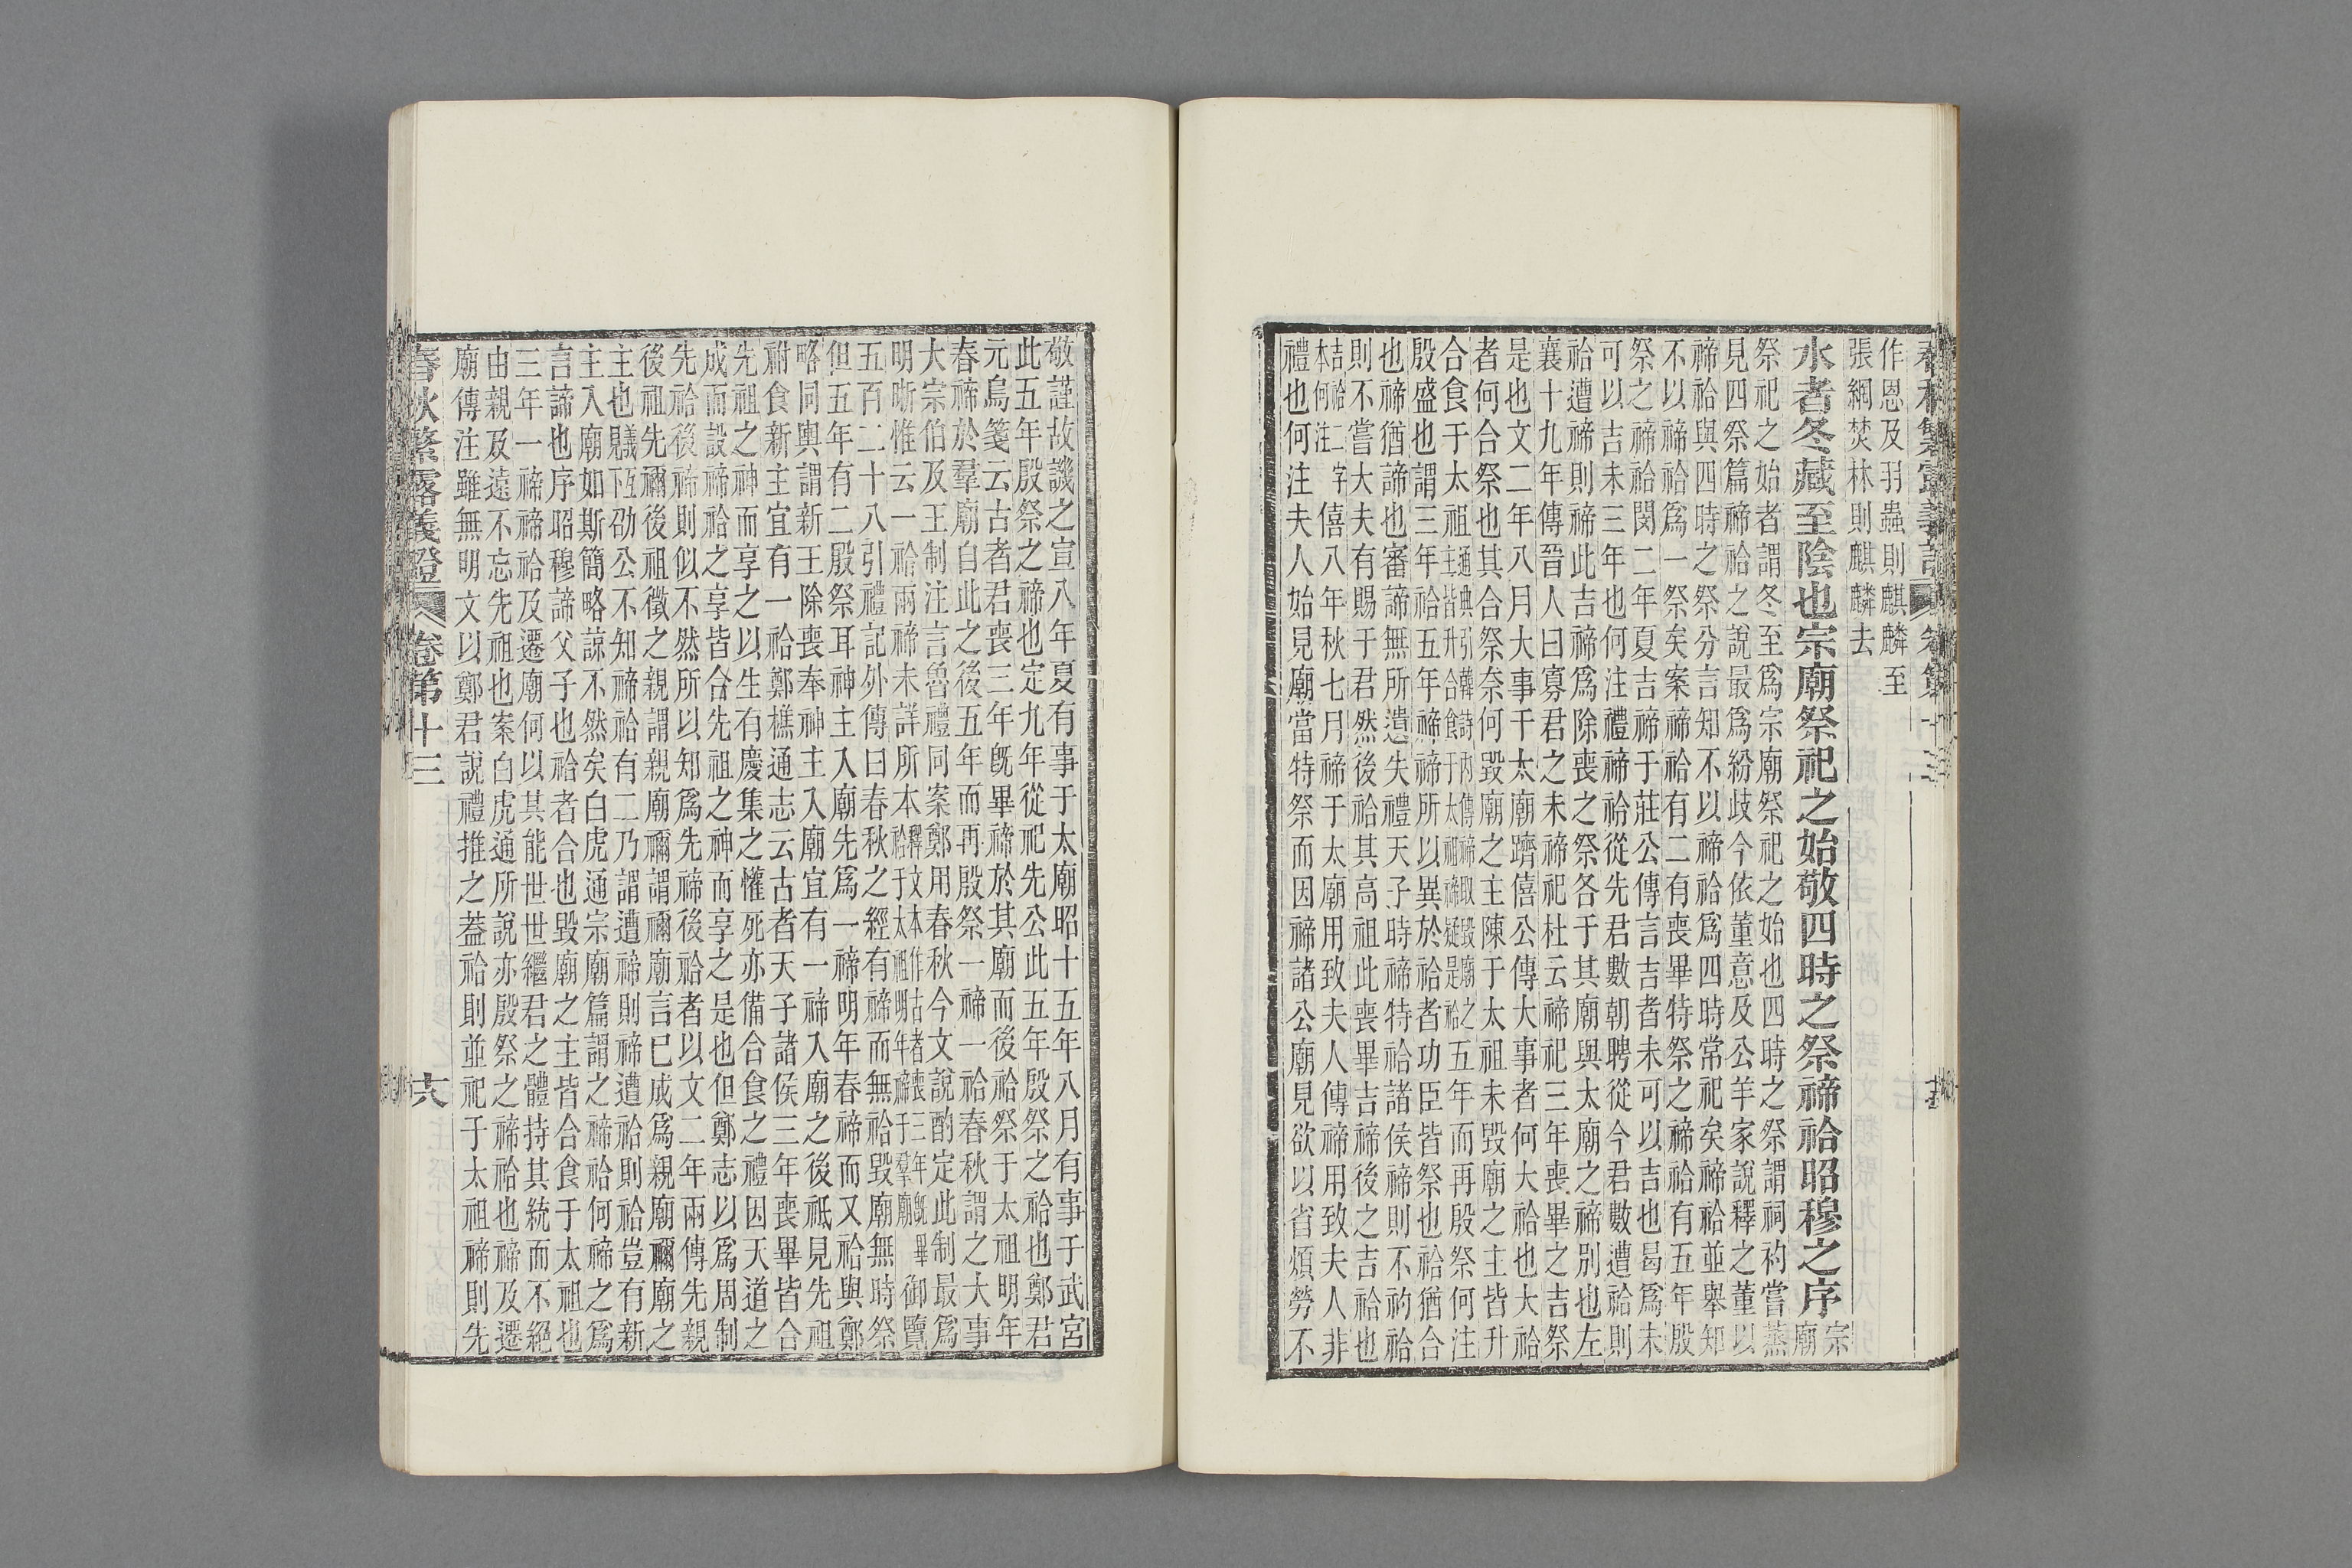 春秋繁露義證 卷第十三 十五
作恩及羽蟲則麒麟至
張網焚林則麒麟去
水者冬藏至陰也宗廟祭祀之始敬四時之祭禘祫昭穆之序宗廟
祭祀之始者謂冬至爲宗廟祭祀之始也四時之祭謂祠礿嘗蒸
見四祭篇禘祫之說最爲紛歧今依董意及公羊家說釋之董以
禘祫與四時之祭分言知不以禘祫爲四時常祀矣禘祫並舉知
不以禘祫爲一祭矣案禘祫有二有喪畢特祭之禘祫有五年殷
祭之禘祫閔二年夏吉禘于莊公傳言吉者未可以吉也曷爲未
可以吉未三年也何注禮禘祫從先君數朝聘從今君數遭祫則
祫遭禘則禘此吉禘爲除喪之祭各于其廟與太廟之禘別也左
襄十九年傳晉人曰寡君之未禘祀杜云禘祀三年喪畢之吉祭
是也文二年八月大事于太廟躋僖公傳大事者何大祫也大祫
者何合祭也其合祭奈何毀廟之主陳于太祖未毀廟之主皆升
合食于太祖通典引韓詩內傳禘取毀廟之主皆升合食于太祖禘疑是祫五年而再殷祭何注
殷盛也謂三年祫五年禘禘所以異於祫者功臣皆祭也祫猶合
也禘猶諦也審諦無所遺失禮天子時禘特祫諸侯禘則不礿祫
則不嘗大夫有賜于君然後祫其高祖此喪畢吉禘後之吉祫也
吉祫二字本何注僖八年秋七月禘于太廟用致夫人傳禘用致夫人非
禮也何注夫人始見廟當特祭而因禘諸公廟見欲以省煩勞不
敬謹故譏之宣八年夏有事于太廟昭十五年八月有事于武宮
此五年殷祭之禘也定九年從祀先公此五年殷祭之祫也鄭君
元鳥箋云古者君喪三年旣畢禘於其廟而後祫祭于太祖明年
春禘於羣廟自此之後五年而再殷祭一禘一祫春秋謂之大事
大宗伯及王制注言魯禮同案鄭用春秋今文說酌定此制最爲
明晰惟云一祫兩禘未詳所本釋文本作古者喪三年旣畢祫于太祖明年禘于羣廟御覽
五百二十八引禮記外傳曰春秋之經有禘而無祫毀廟無時祭
但五年有二殷祭耳神主入廟先爲一禘明年春禘而又祫與鄭
略同輿謂新王除喪奉神主入廟宜有一禘入廟之後祗見先祖
祔食新主宜有一祫鄭樵通志云古者天子諸侯三年喪畢皆合
先祖之神而享之以生有慶集之懽死亦備合食之禮因天道之
成而設禘祫之享皆合先祖之神而享之是也但鄭志以爲周制
先祫後禘則似不然所以知爲先禘後祫者以文二年兩傳先親
後祖先禰後祖徵之親謂親廟禰謂禰廟言已成爲親廟禰廟之
主也劭公不知禘祫有二乃謂遭禘則禘遭祫則祫豈有新
主入廟如斯簡略諒不然矣白虎通宗廟篇謂之禘祫何禘之爲
言諦也序昭穆諦父子也祫者合也毀廟之主皆合食于太祖也
三年一禘禘祫及遷廟何以其能世世繼君之體持其統而不絕
由親及遠不忘先祖也案白虎通所說亦殷祭之禘祫也禘及遷
廟傳注雖無明文以鄭君說禮推之蓋祫則並祀于太祖禘則先
春秋繁露義證 卷第十三 十六